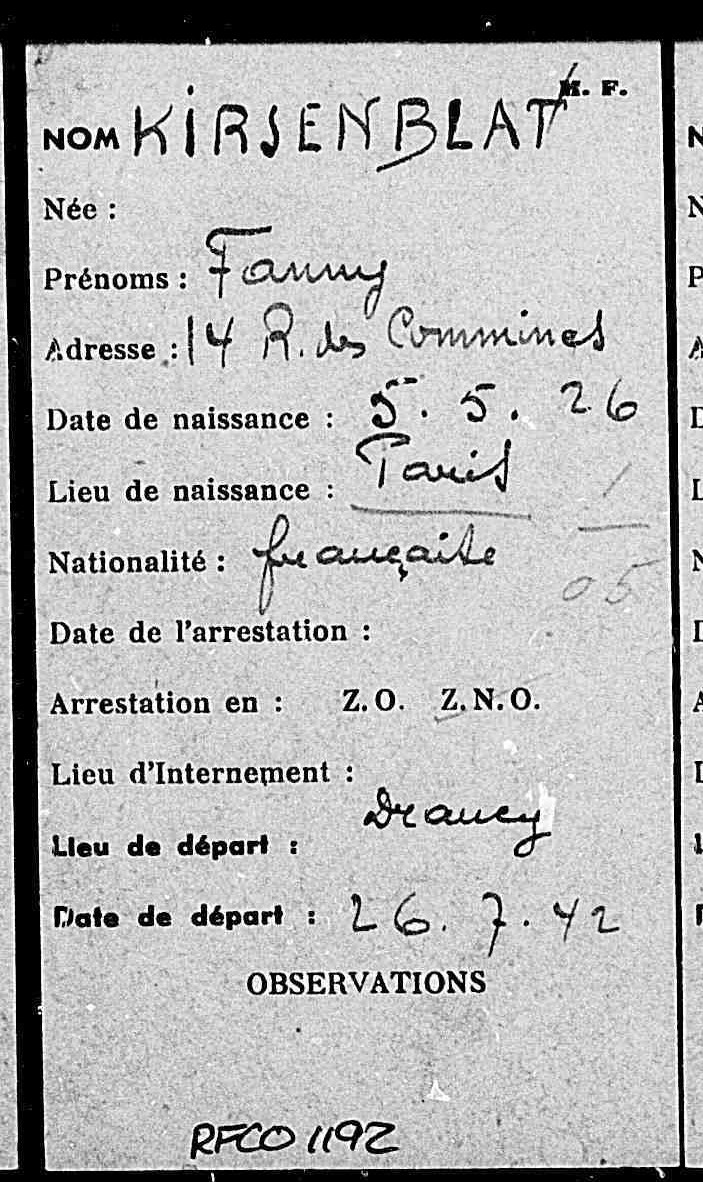 M. F.
NOM KIRSENBLAT
Née :
Prénoms : Fanny
Adresse : 14 R. des Commines
Date de naissance : 5. 5. 26
Lieu de naissance : Paris
Nationalité : française
05
Date de l'arrestation :
Arrestation en : Z.O. Z.N.O.
Lieu d'Internement :
Drancy
Lieu de départ :
Date de départ : 26. 7. 42
OBSERVATIONS
RFCO 1192